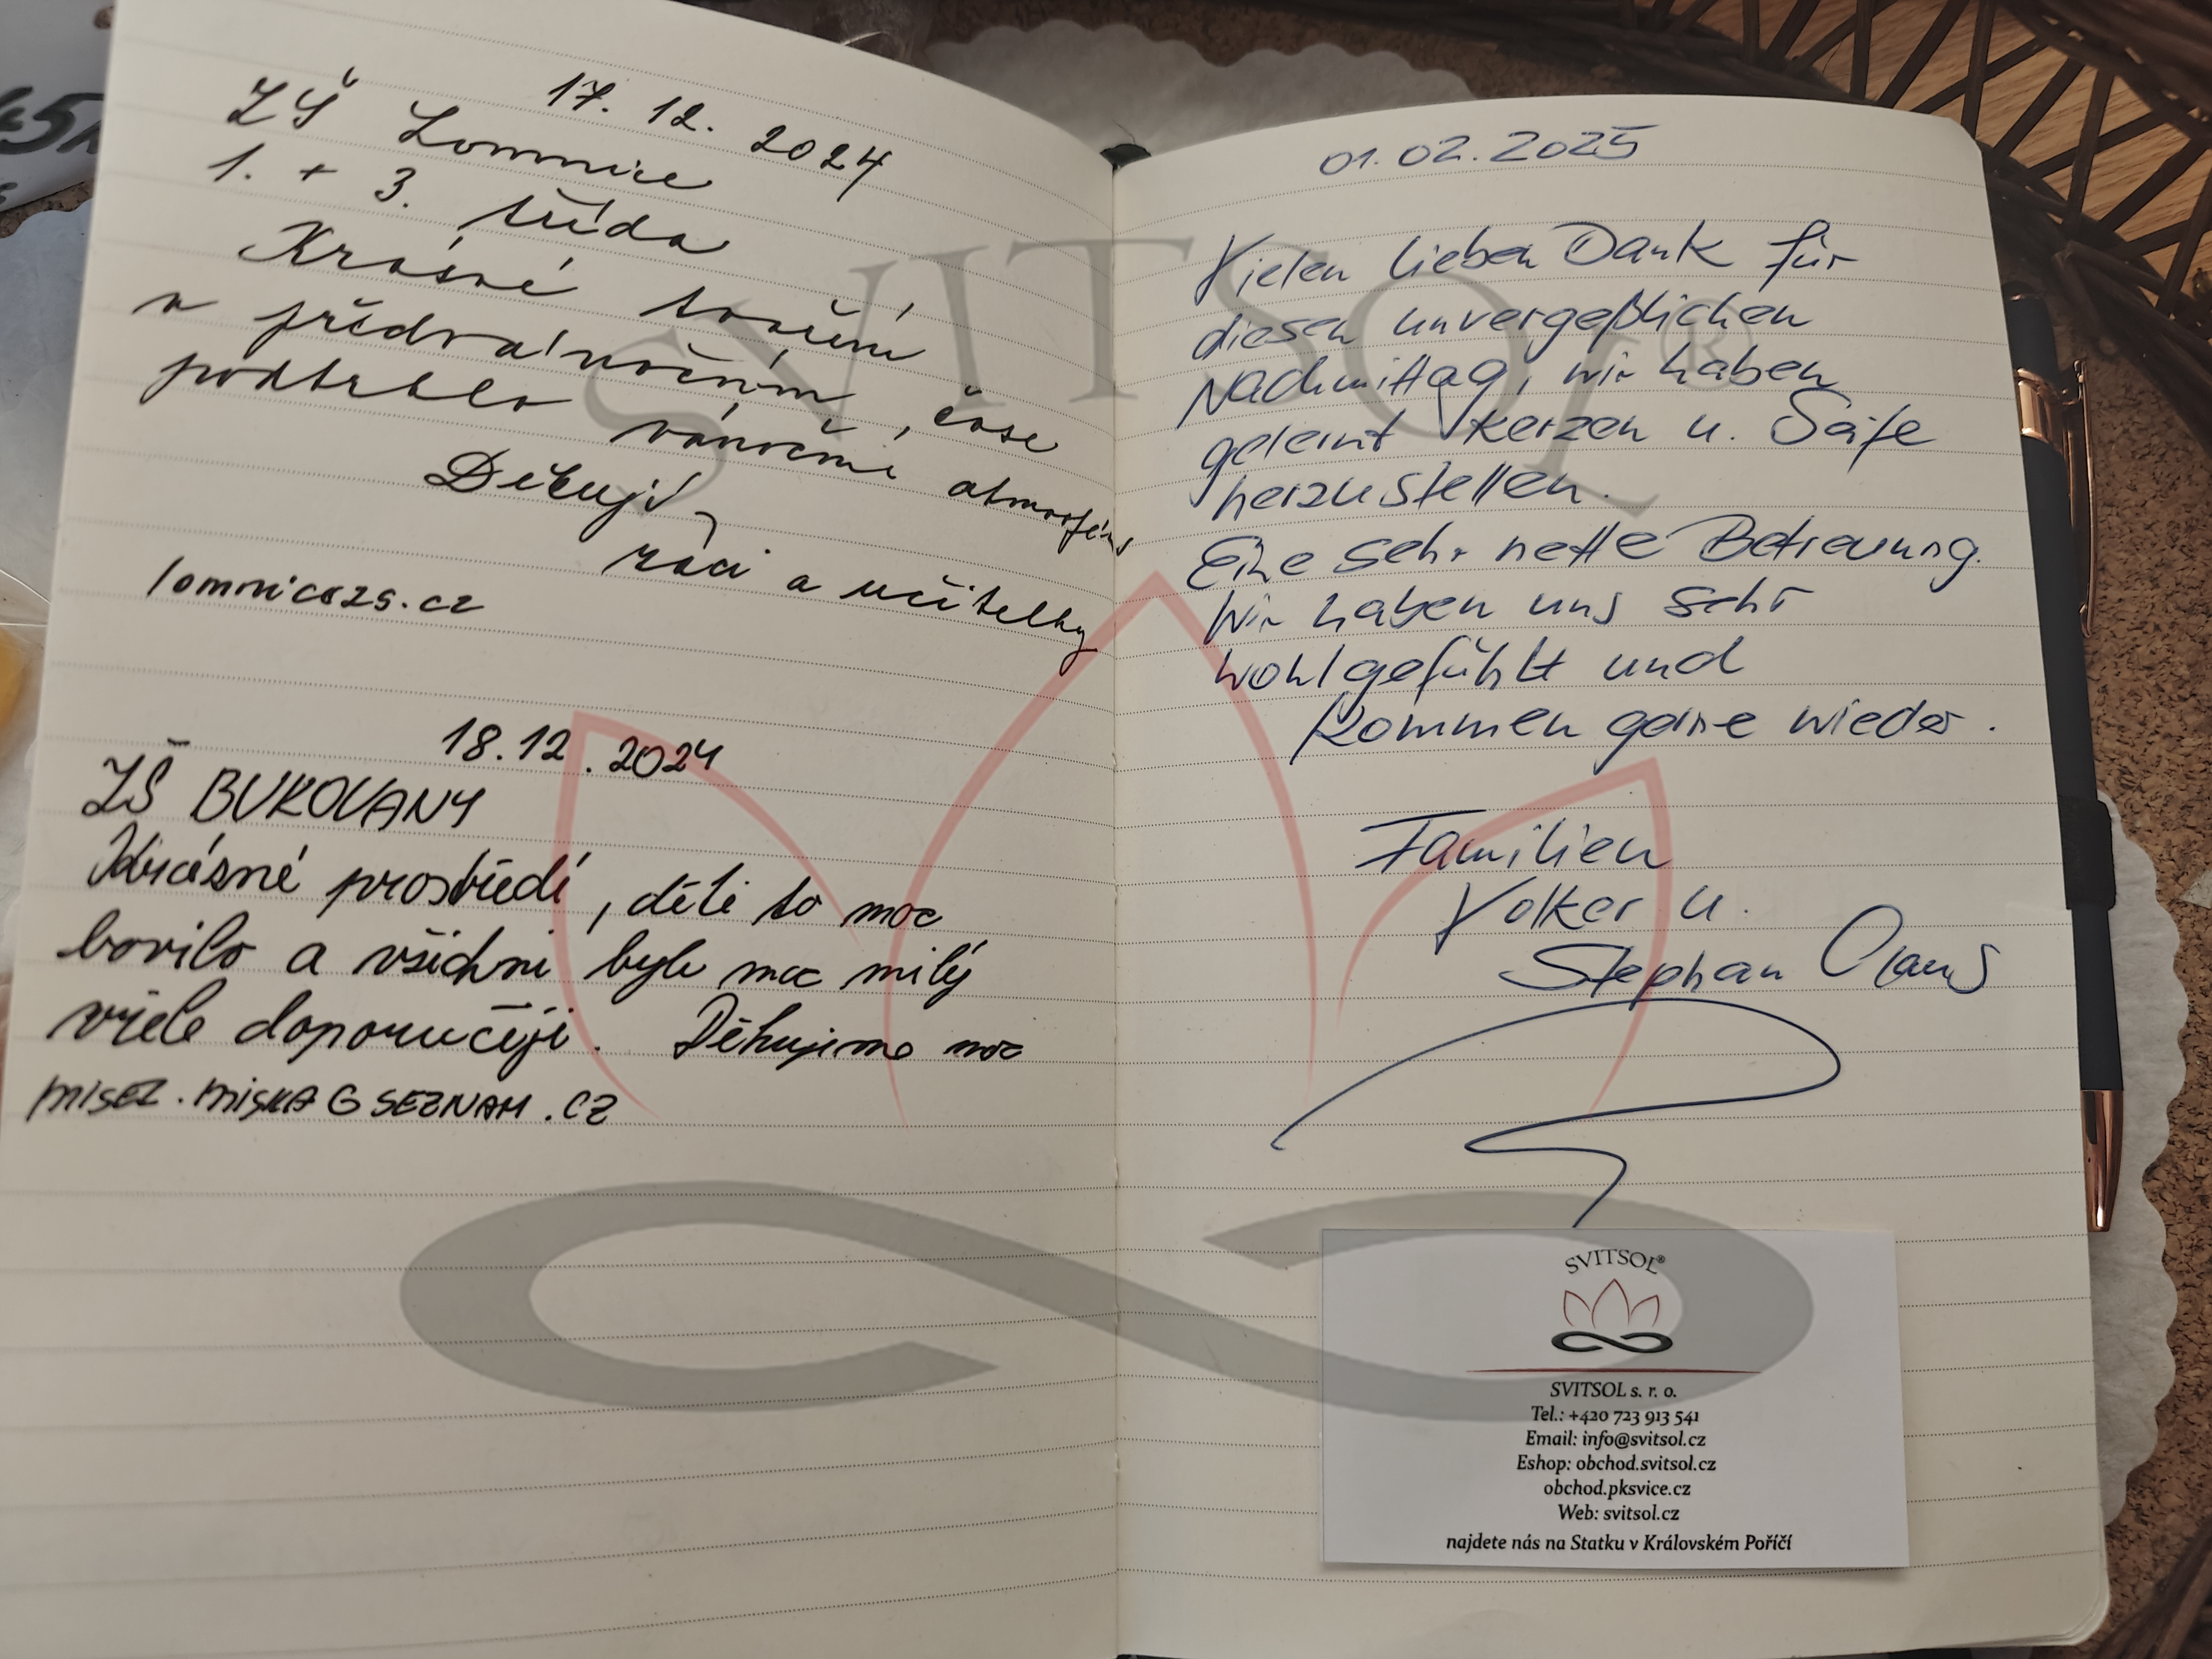 17. 12. 2024
ZŠ Lomnice
1. + 3. třída
Krásné tvoření
v předvánočním čase
podtrhlo vánoční atmosféru
Děkují
žáci a učitelky
lomnicezs.cz
18.12.2024
ZŠ BUKOVANY
Krásné prostředí, děti to moc
bavilo a všichni byli moc milý
vřele doporučuji. Děkujeme moc
MISEZ.MISKA@SEZNAM.CZ
01.02.2025
Vielen lieben Dank für
diesen unvergeßlichen
Nachmittag, wir haben
gelernt Kerzen u. Seife
herzustellen.
Eine sehr nette Betreuung.
Wir haben uns sehr
wohlgefühlt und
kommen gerne wieder.
Familien
Volker u.
Stephan
SVITSOL®
SVITSOL®
SVITSOL s. r. o.
Tel.: +420 723 913 541
Email: info@svitsol.cz
Eshop: obchod.svitsol.cz
obchod.pksvice.cz
Web: svitsol.cz
najdete nás na Statku v Královském Poříčí